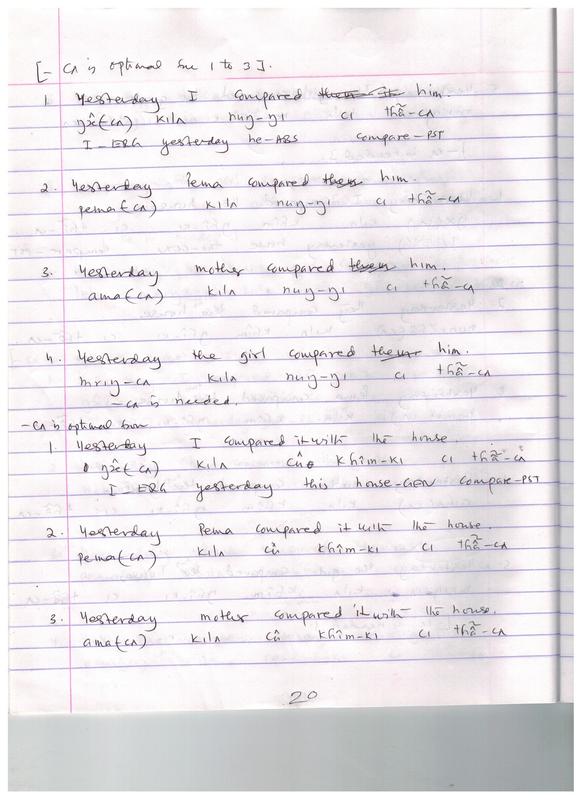 [- cʌ is optional for 1 to 3].
1. Yesterday I compared him.
ŋɤ̂(cʌ) kilʌ nuŋ-ŋi ci thã̂-cʌ
I-ERG yesterday he-ABS compare-PST
2. Yesterday Pema compared him.
pema(cʌ) kilʌ nuŋ-ŋi ci thã̂-cʌ
3. Yesterday mother compared him.
ama(cʌ) kilʌ nuŋ-ŋi ci thã̂-cʌ
4. Yesterday the girl compared him.
mriŋ-cʌ kilʌ nuŋ-ŋi ci thã̂-cʌ
-cʌ is needed.
-cʌ is optional
1. Yesterday I compared it with the house.
ŋɤ̂(cʌ) kilʌ cû khîm-ki ci thã̂-cʌ
I-ERG yesterday this house-GEN compare-PST
2. Yesterday Pema compared it with the house.
pema(cʌ) kilʌ cû khîm-ki ci thã̂-cʌ
3. Yesterday mother compared it with the house.
ama(cʌ) kilʌ cû khîm-ki ci thã̂-cʌ
20